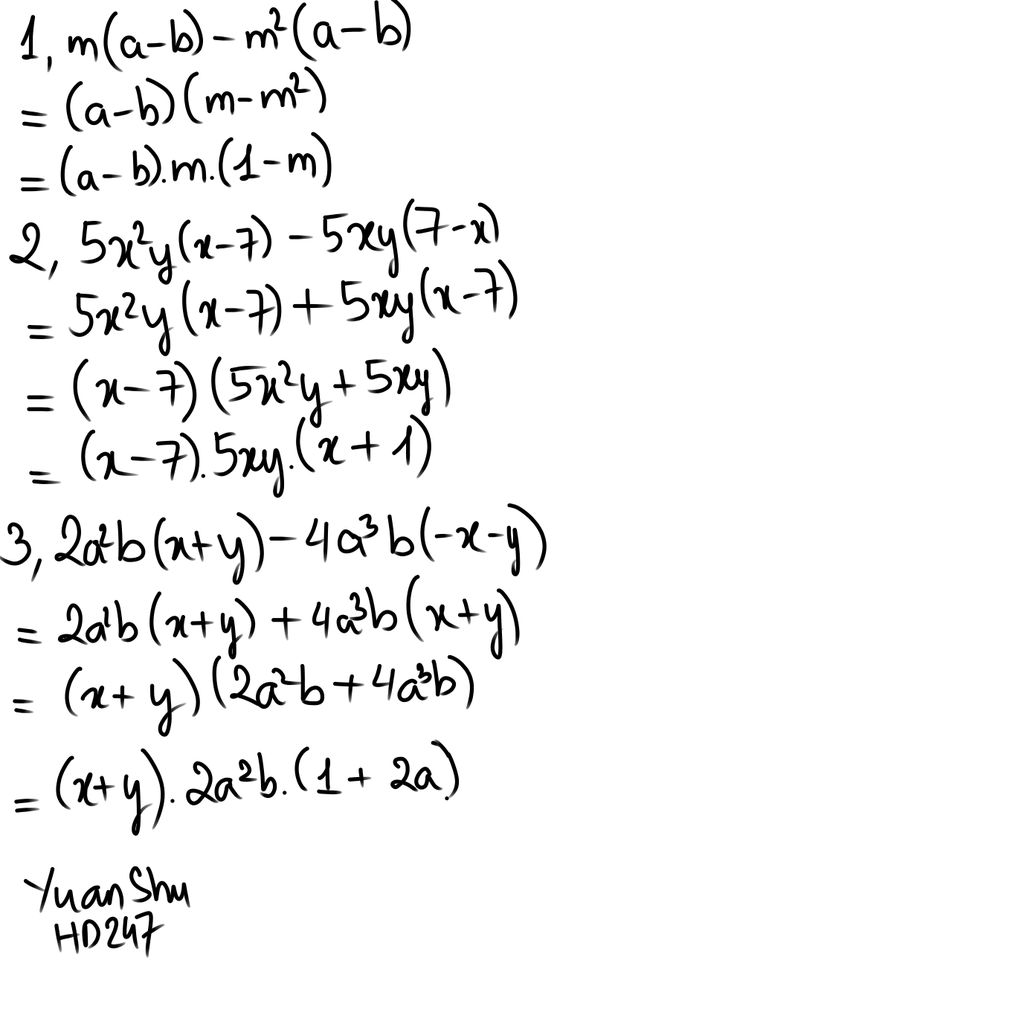 1, m(a-b) - m²(a-b)
= (a-b)(m-m²)
= (a-b).m.(1-m)
2, 5x²y(x-7) - 5xy(7-x)
= 5x²y(x-7) + 5xy(x-7)
= (x-7)(5x²y + 5xy)
= (x-7).5xy.(x+1)
3, 2a²b(x+y) - 4a³b(-x-y)
= 2a²b(x+y) + 4a³b(x+y)
= (x+y)(2a²b + 4a³b)
= (x+y).2a²b.(1+2a).
YuanShu
HD247